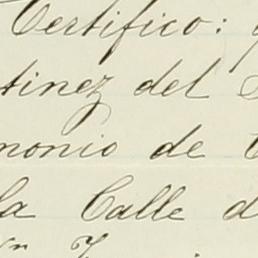 Certifico:
tinez del
monio de
la Calle d